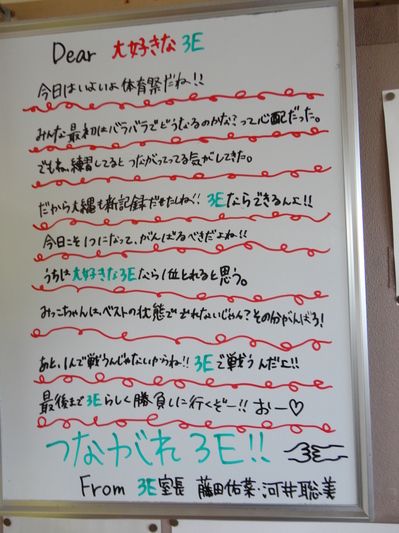 Dear 大好きな 3E
今日はいよいよ体育祭だね!!
みんな最初はバラバラでどうなるのかな?って心配だった。
でもね、練習してるとつながってってる気がしてきた。
だから大縄も新記録だせたしね!! 3Eならできるんよ!!
今日こそ1つになって、がんばるべきだよね!!
うちは大好きな3Eなら1位とれると思う。
みっこちゃんは、ベストの状態ででれないじゃん?その分がんばろ!
あと、1人で戦うんじゃないからね!! 3Eで戦うんだよ!!
最後まで3Eらしく勝負しに行くぞー!! おー♡
つながれ 3E!!
From 3E室長 藤田佑菜・河井聡美